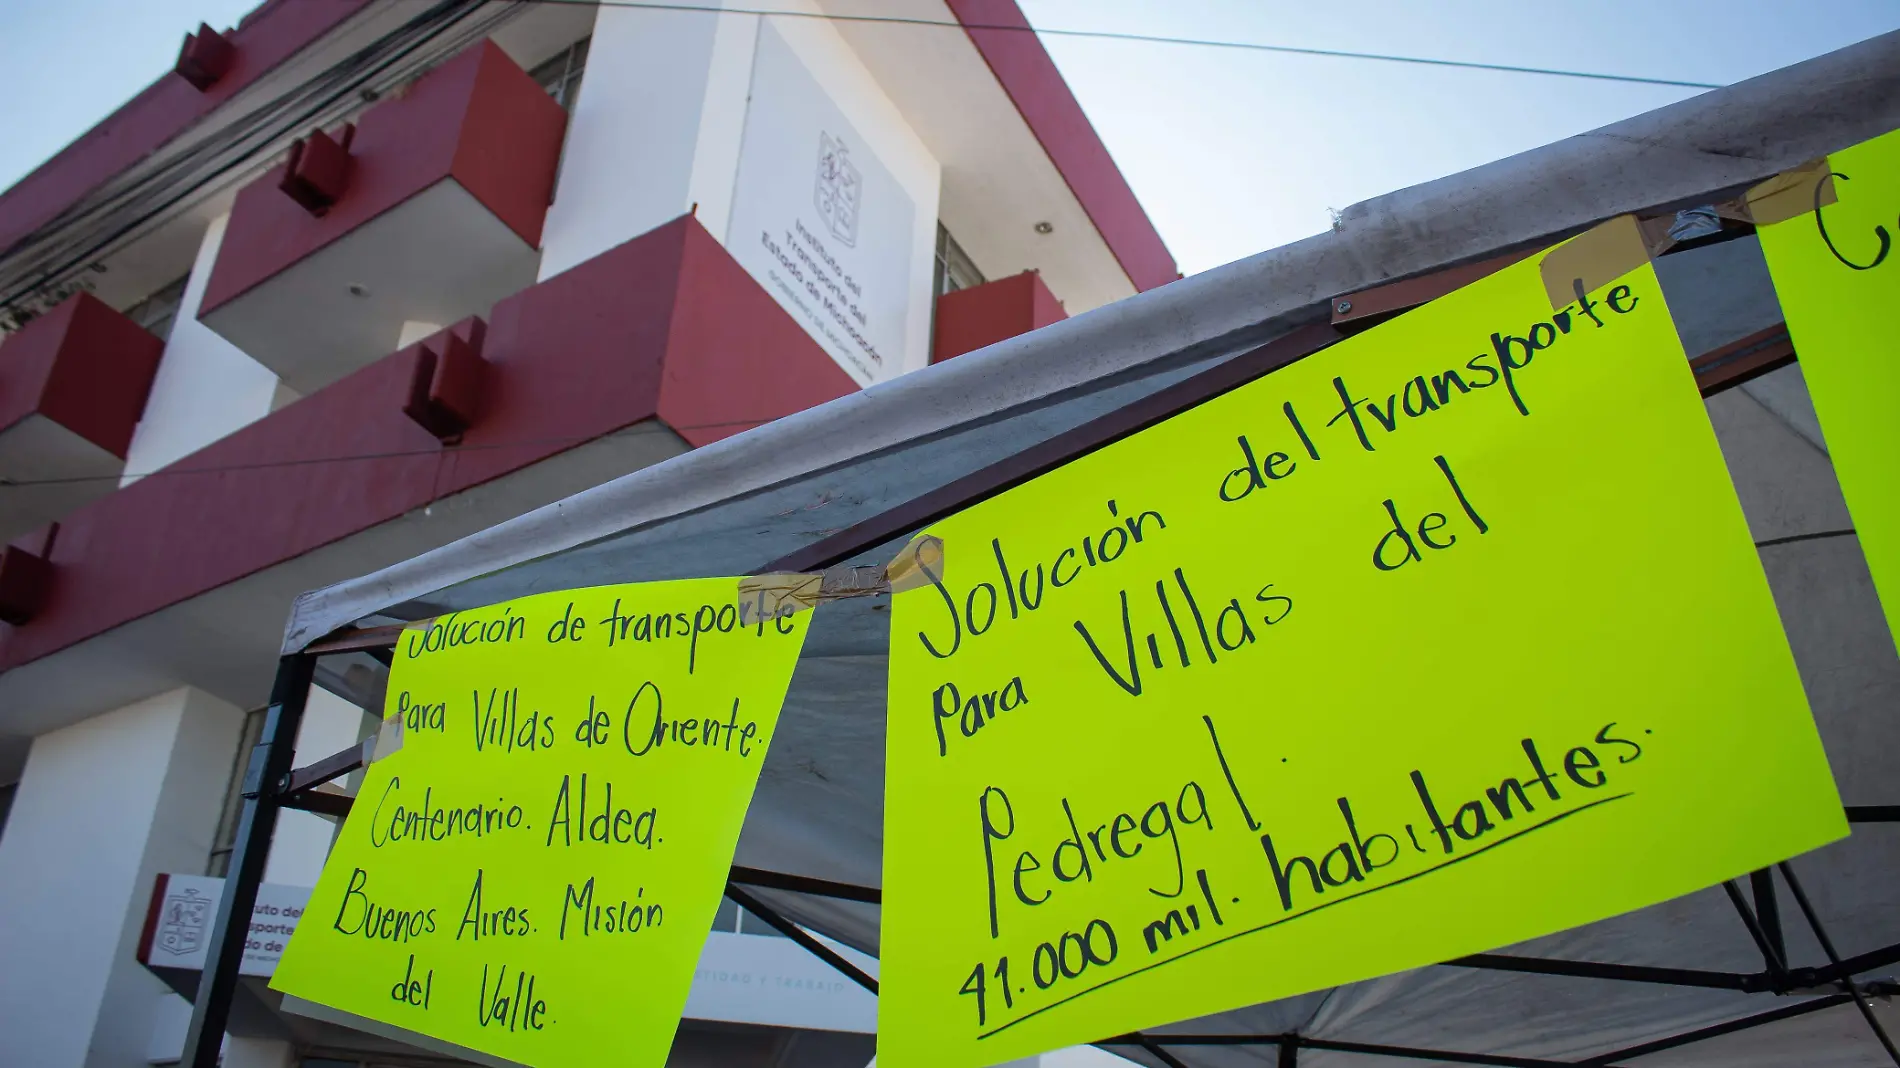 Instituto del
Transporte del
Estado de Michoacán
GOBIERNO DE MICHOACÁN
Solución de transporte
Para Villas de Oriente.
Centenario. Aldea.
Buenos Aires. Misión
del Valle.
Solución del transporte
Para Villas del
Pedregal.
41.000 mil. habitantes.
uto del
sporte
do de
TIDAD Y TRABAJO